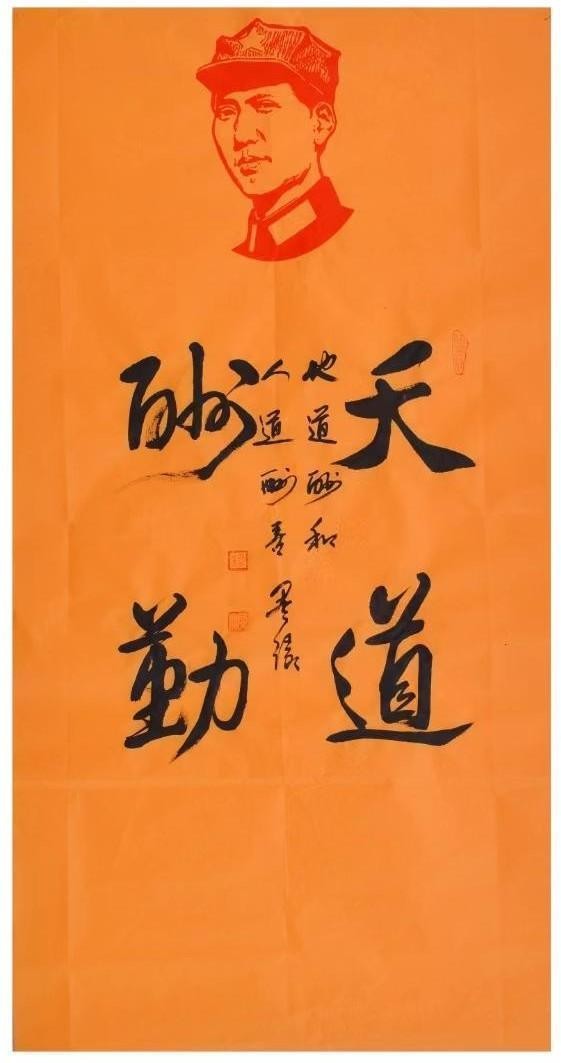 天道
酬勤
地道酬和
人道酬善 墨缘